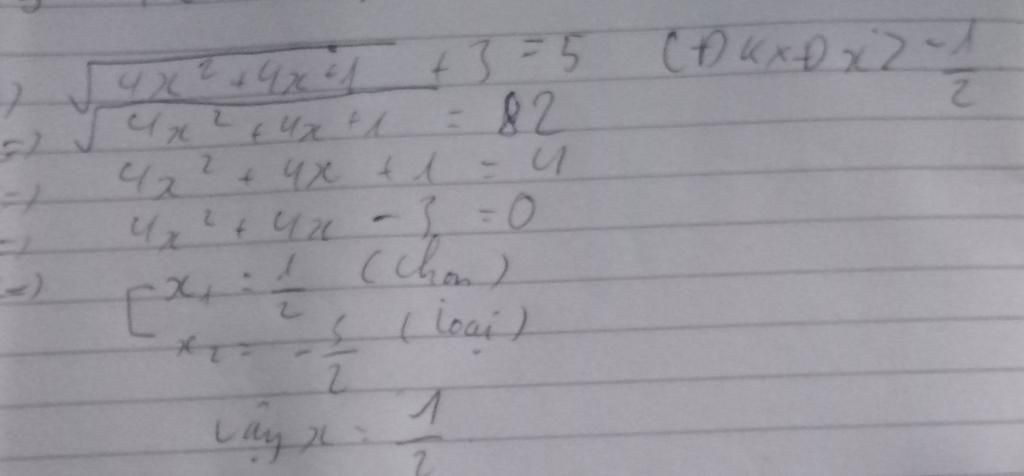 ) √(4x² + 4x + 1) + 3 = 5 (ĐKXĐ x ≥ -1/2
=) √(4x² + 4x + 1) = 2
=) 4x² + 4x + 1 = 4
=) 4x² + 4x - 3 = 0
=) [ x₁ = 1/2 (chọn)
x₂ = -3/2 (loại)
Vậy x = 1/2